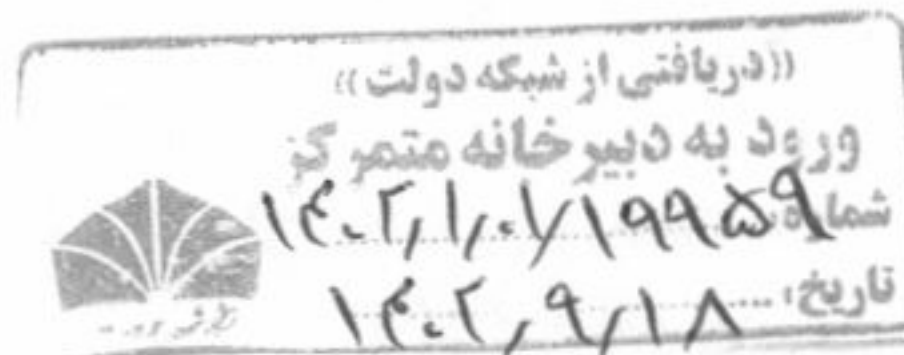 ((دریافتی از شبکه دولت))
ورود به دبیرخانه متمرکز
شماره: ۱۴۰۲/۱/۰۱/۱۹۹۵۹
تاریخ: ۱۴۰۲/۹/۱۸